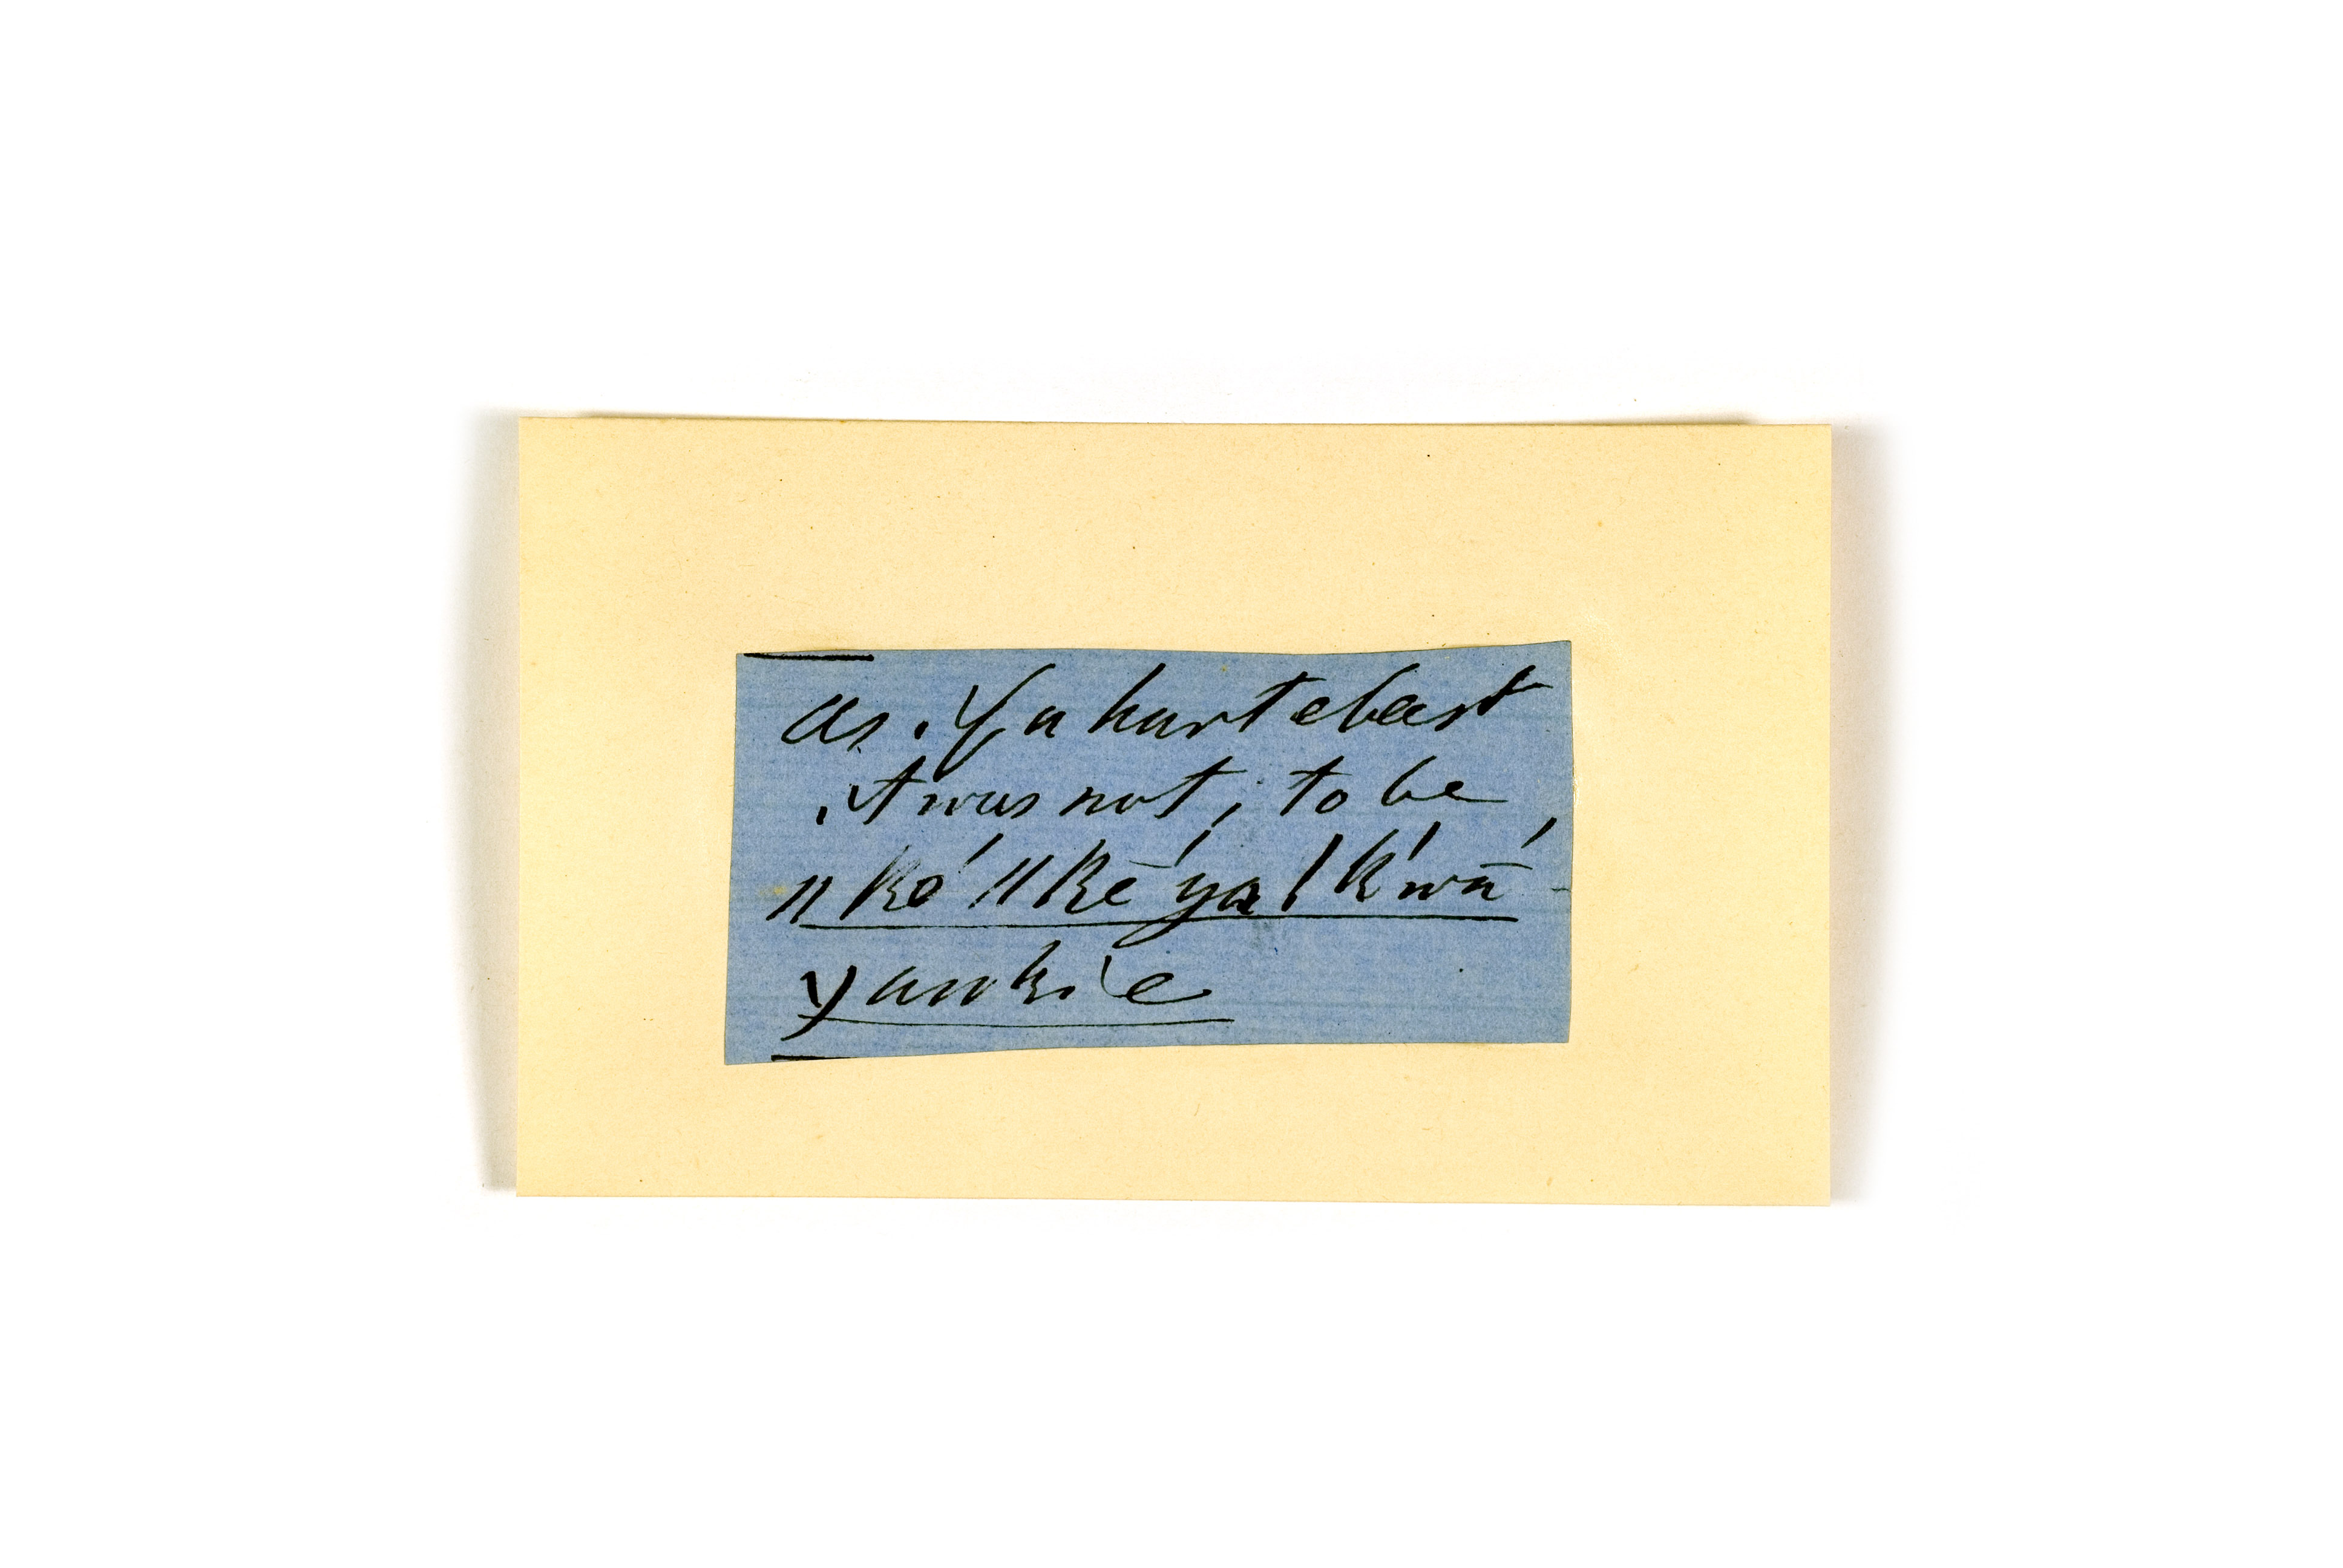 as if a hartebeest
it was not, to be
ǁkó ǁkḗ ya ǀkʹwā́-
yan kie